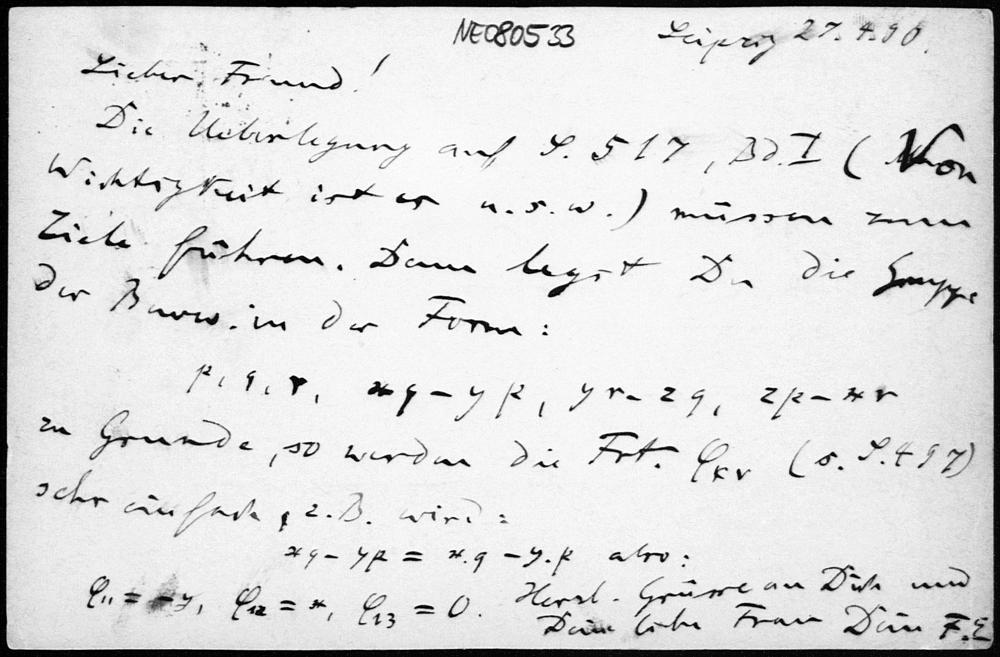 NE080533
Leipzig 27.4.90.
Lieber Freund!
Die Ueberlegung auf S. 517, Bd. I (Von
Wichtigkeit ist es u.s.w.) müssen zum
Ziele führen. Dann legst Du die Gruppe
der Beww. in der Form:
p, q, r, xq-yp, yr-zq, zp-xr
zu Grunde, so werden die Fct. φκν (s. S. 497)
sehr einfach, z.B. wird:
xq-yp = x.q-y.p also:
φ11 = -y, φ12 = x, φ13 = 0. Herzl. Grüsse an Dich und
Deine liebe Frau Dein F.E